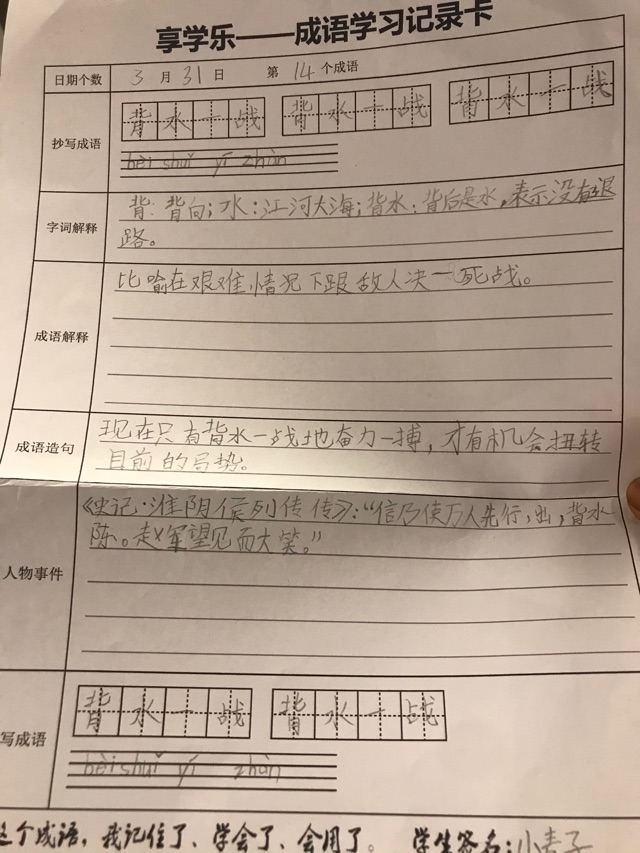 享学乐——成语学习记录卡
日期个数 3 月 31 日 第 14 个成语
抄写成语 背水一战 背水一战 背水一战
bèi shuǐ yī zhàn
字词解释 背:背向;水:江河大海;背水:背后是水,表示没有退
路。
成语解释 比喻在艰难情况下跟敌人决一死战。
成语造句 现在只有背水一战地奋力一搏,才有机会扭转
目前的局势。
人物事件 《史记·淮阴侯列传传》:“信乃使万人先行,出,背水
陈。赵军望见而大笑。”
写成语 背水一战 背水一战
bèi shuǐ yī zhàn
这个成语,我记住了、学会了、会用了。 学生签名:小麦子